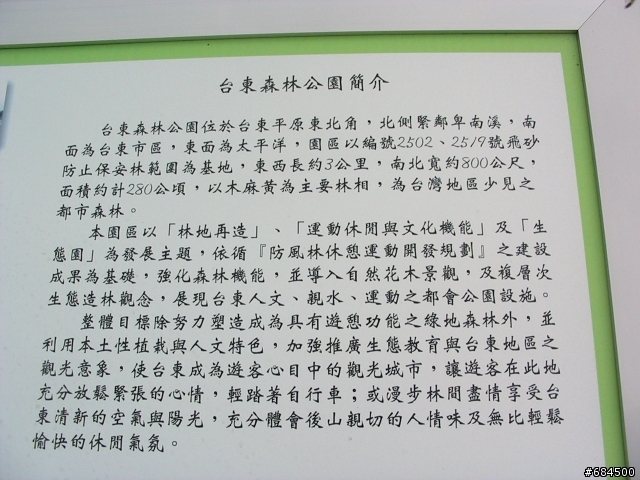 台東森林公園簡介
台東森林公園位於台東平原東北角，北側緊鄰卑南溪，南
面為台東市區，東面為太平洋，園區以編號2502、2519號飛砂
防止保安林範圍為基地，東西長約3公里，南北寬約800公尺，
面積約計280公頃，以木麻黃為主要林相，為台灣地區少見之
都市森林。
本園區以「林地再造」、「運動休閒與文化機能」及「生
態園」為發展主題，依循『防風林休憩運動開發規劃』之建設
成果為基礎，強化森林機能，並導入自然花木景觀，及複層次
生態造林觀念，展現台東人文、親水、運動之都會公園設施。
整體目標除努力塑造成為具有遊憩功能之綠地森林外，並
利用本土性植栽與人文特色，加強推廣生態教育與台東地區之
觀光意象，使台東成為遊客心目中的觀光城市，讓遊客在此地
充分放鬆緊張的心情，輕踏著自行車；或漫步林間盡情享受台
東清新的空氣與陽光，充分體會後山親切的人情味及無比輕鬆
愉快的休閒氣氛。
#684500